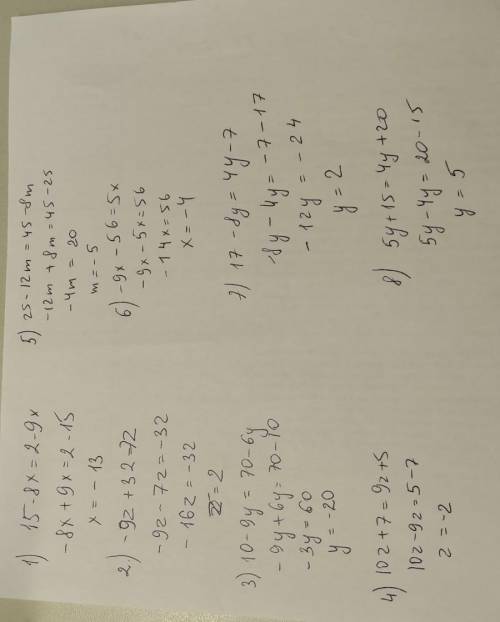 1) 15-8x=2-9x
-8x+9x=2-15
x=-13
2) -9z+32=7z
-9z-7z=-32
-16z=-32
z=2
3) 10-9y=70-6y
-9y+6y=70-10
-3y=60
y=-20
4) 10z+7=9z+5
10z-9z=5-7
z=-2
5) 25-12m=45-8m
-12m+8m=45-25
-4m=20
m=-5
6) -9x-56=5x
-9x-5x=56
-14x=56
x=-4
7) 17-8y=4y-7
-8y-4y=-7-17
-12y=-24
y=2
8) 5y+15=4y+20
5y-4y=20-15
y=5